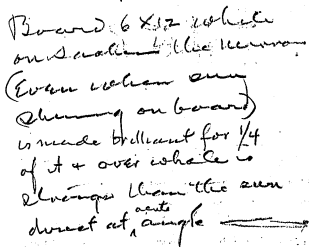 Board 6 X 12 white
on the mirror
(Even when sun
shining on board)
is made brilliant for 1/4
of it & over whole is
stronger than the sun
direct at acute angle